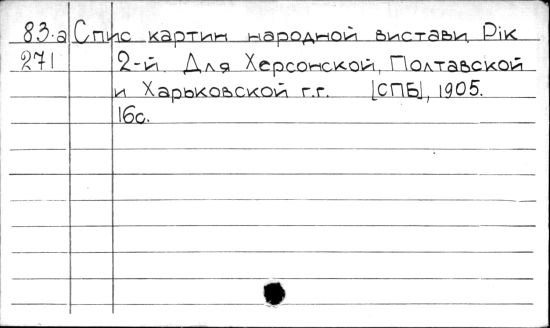 83.а Спис картин народной вистави, Рік
271 2-й. Для Херсонской, Полтавской
и Харьковской г.г. [СПБ], 1905.
16с.